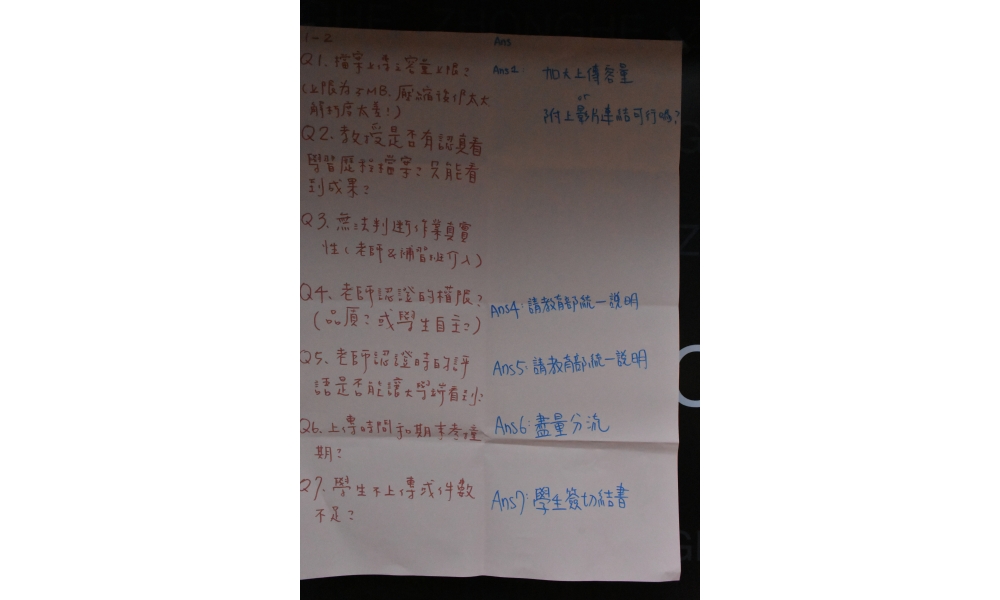 1-2
Q1. 檔案上傳之容量上限?
(上限為5MB. 壓縮後仍太大
解析度太差!)
Q2. 教授是否有認真看
學習歷程檔案? 只能看
到成果?
Q3. 無法判斷作業真實
性(老師&補習班介入)
Q4. 老師認證的權限?
(品質? 或學生自主?)
Q5. 老師認證時的評
語是否能讓大學端看到
Q6. 上傳時間和期末考撞
期?
Q7. 學生不上傳或件數
不足?
Ans
Ans1: 加大上傳容量
or
附上影片連結可行嗎?
Ans4: 請教育部統一說明
Ans5: 請教育部統一說明
Ans6: 盡量分流
Ans7: 學生簽切結書
ZHONGHE